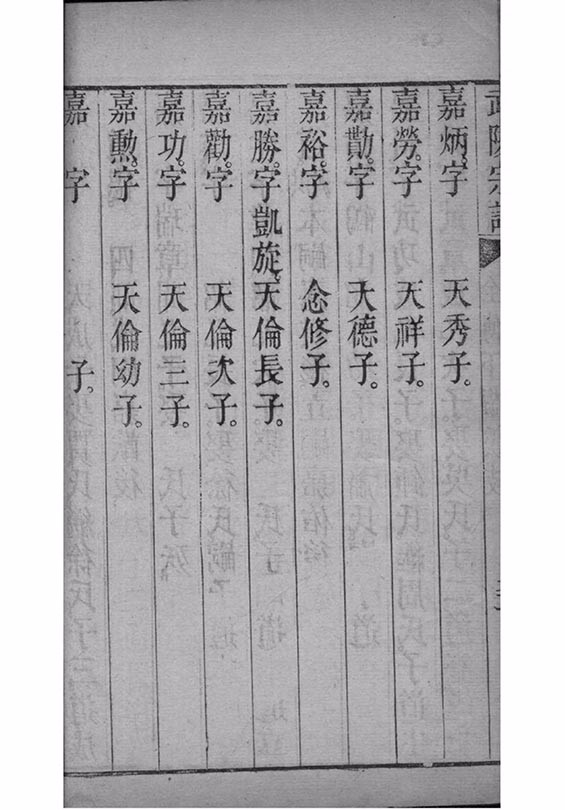 武陵宗譜
嘉炳字 天秀子。
嘉勞。字 天祥子。
嘉勛。字 大德子。
嘉裕。字 念修子。
嘉勝。字凱旋。天倫長子。
嘉勸。字 天倫次子。
嘉功。字 天倫三子。
嘉勲。字 天倫幼子。
嘉 字 子。